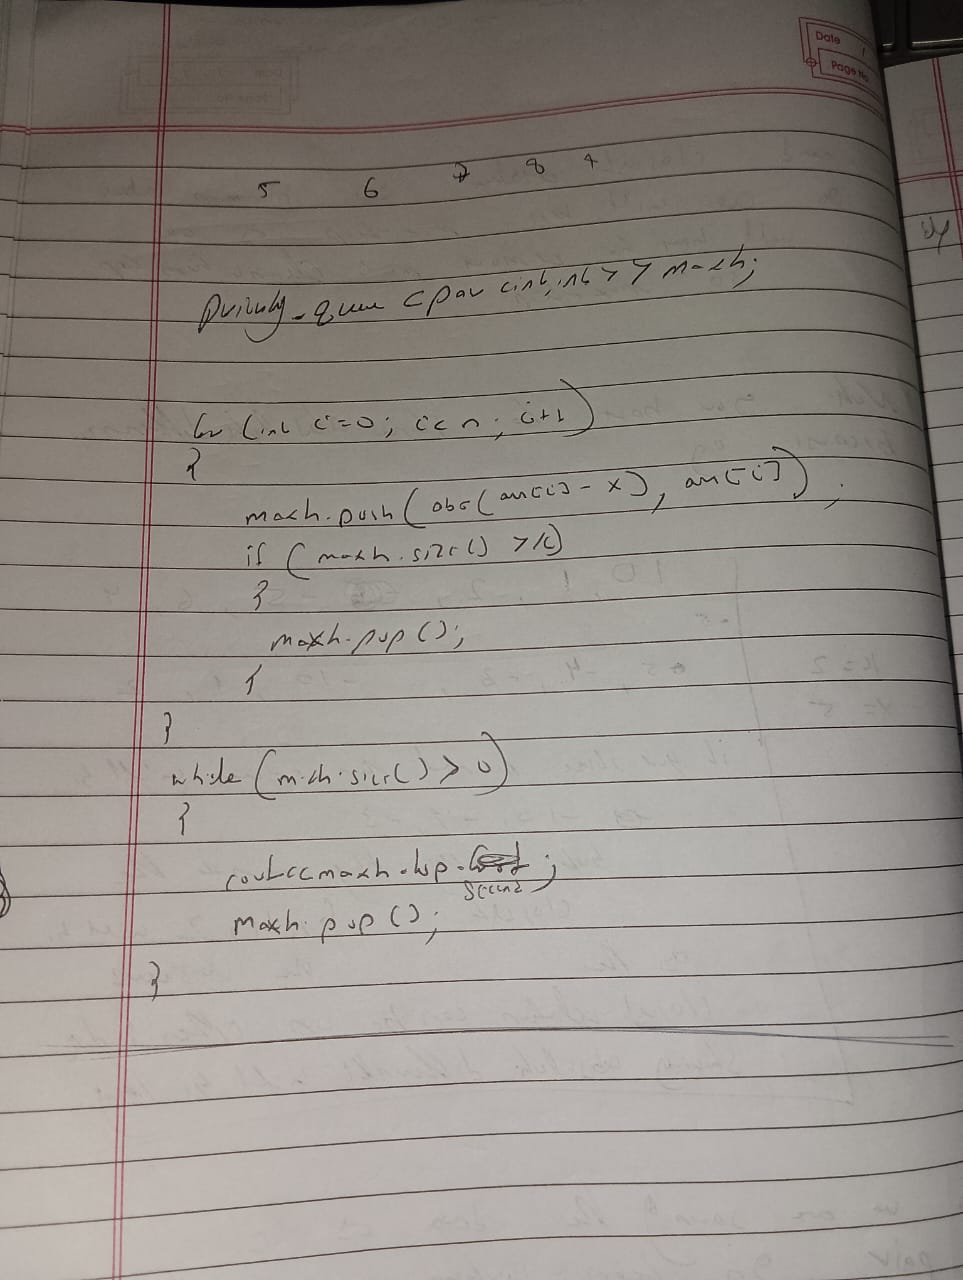 Date /
Page No
5 6 7 8 9
Priority_queue <pair <int, int> > maxh;
for (int i=0; i<n; i++)
{
maxh.push(abs(arr[i] - x), arr[i]);
if (maxh.size() >k)
}
maxh.pop();
{
}
while (maxh.size() > 0)
{
cout<<maxh.top.second;
maxh.pop();
}